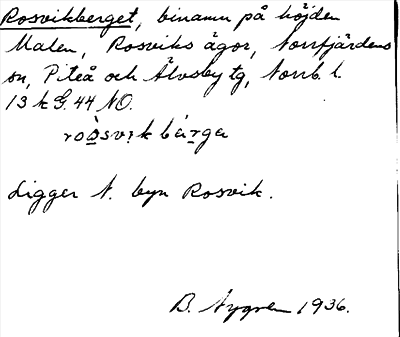 Rosvikberget, binamn på höjden
Malen, Rosviks ägor, Norrfjärdens
sn, Piteå och Älvsby tg, Norrb. l.
13 k G. 44 NO.
Ligger N. byn Rosvik.
B. Nygren 1936.